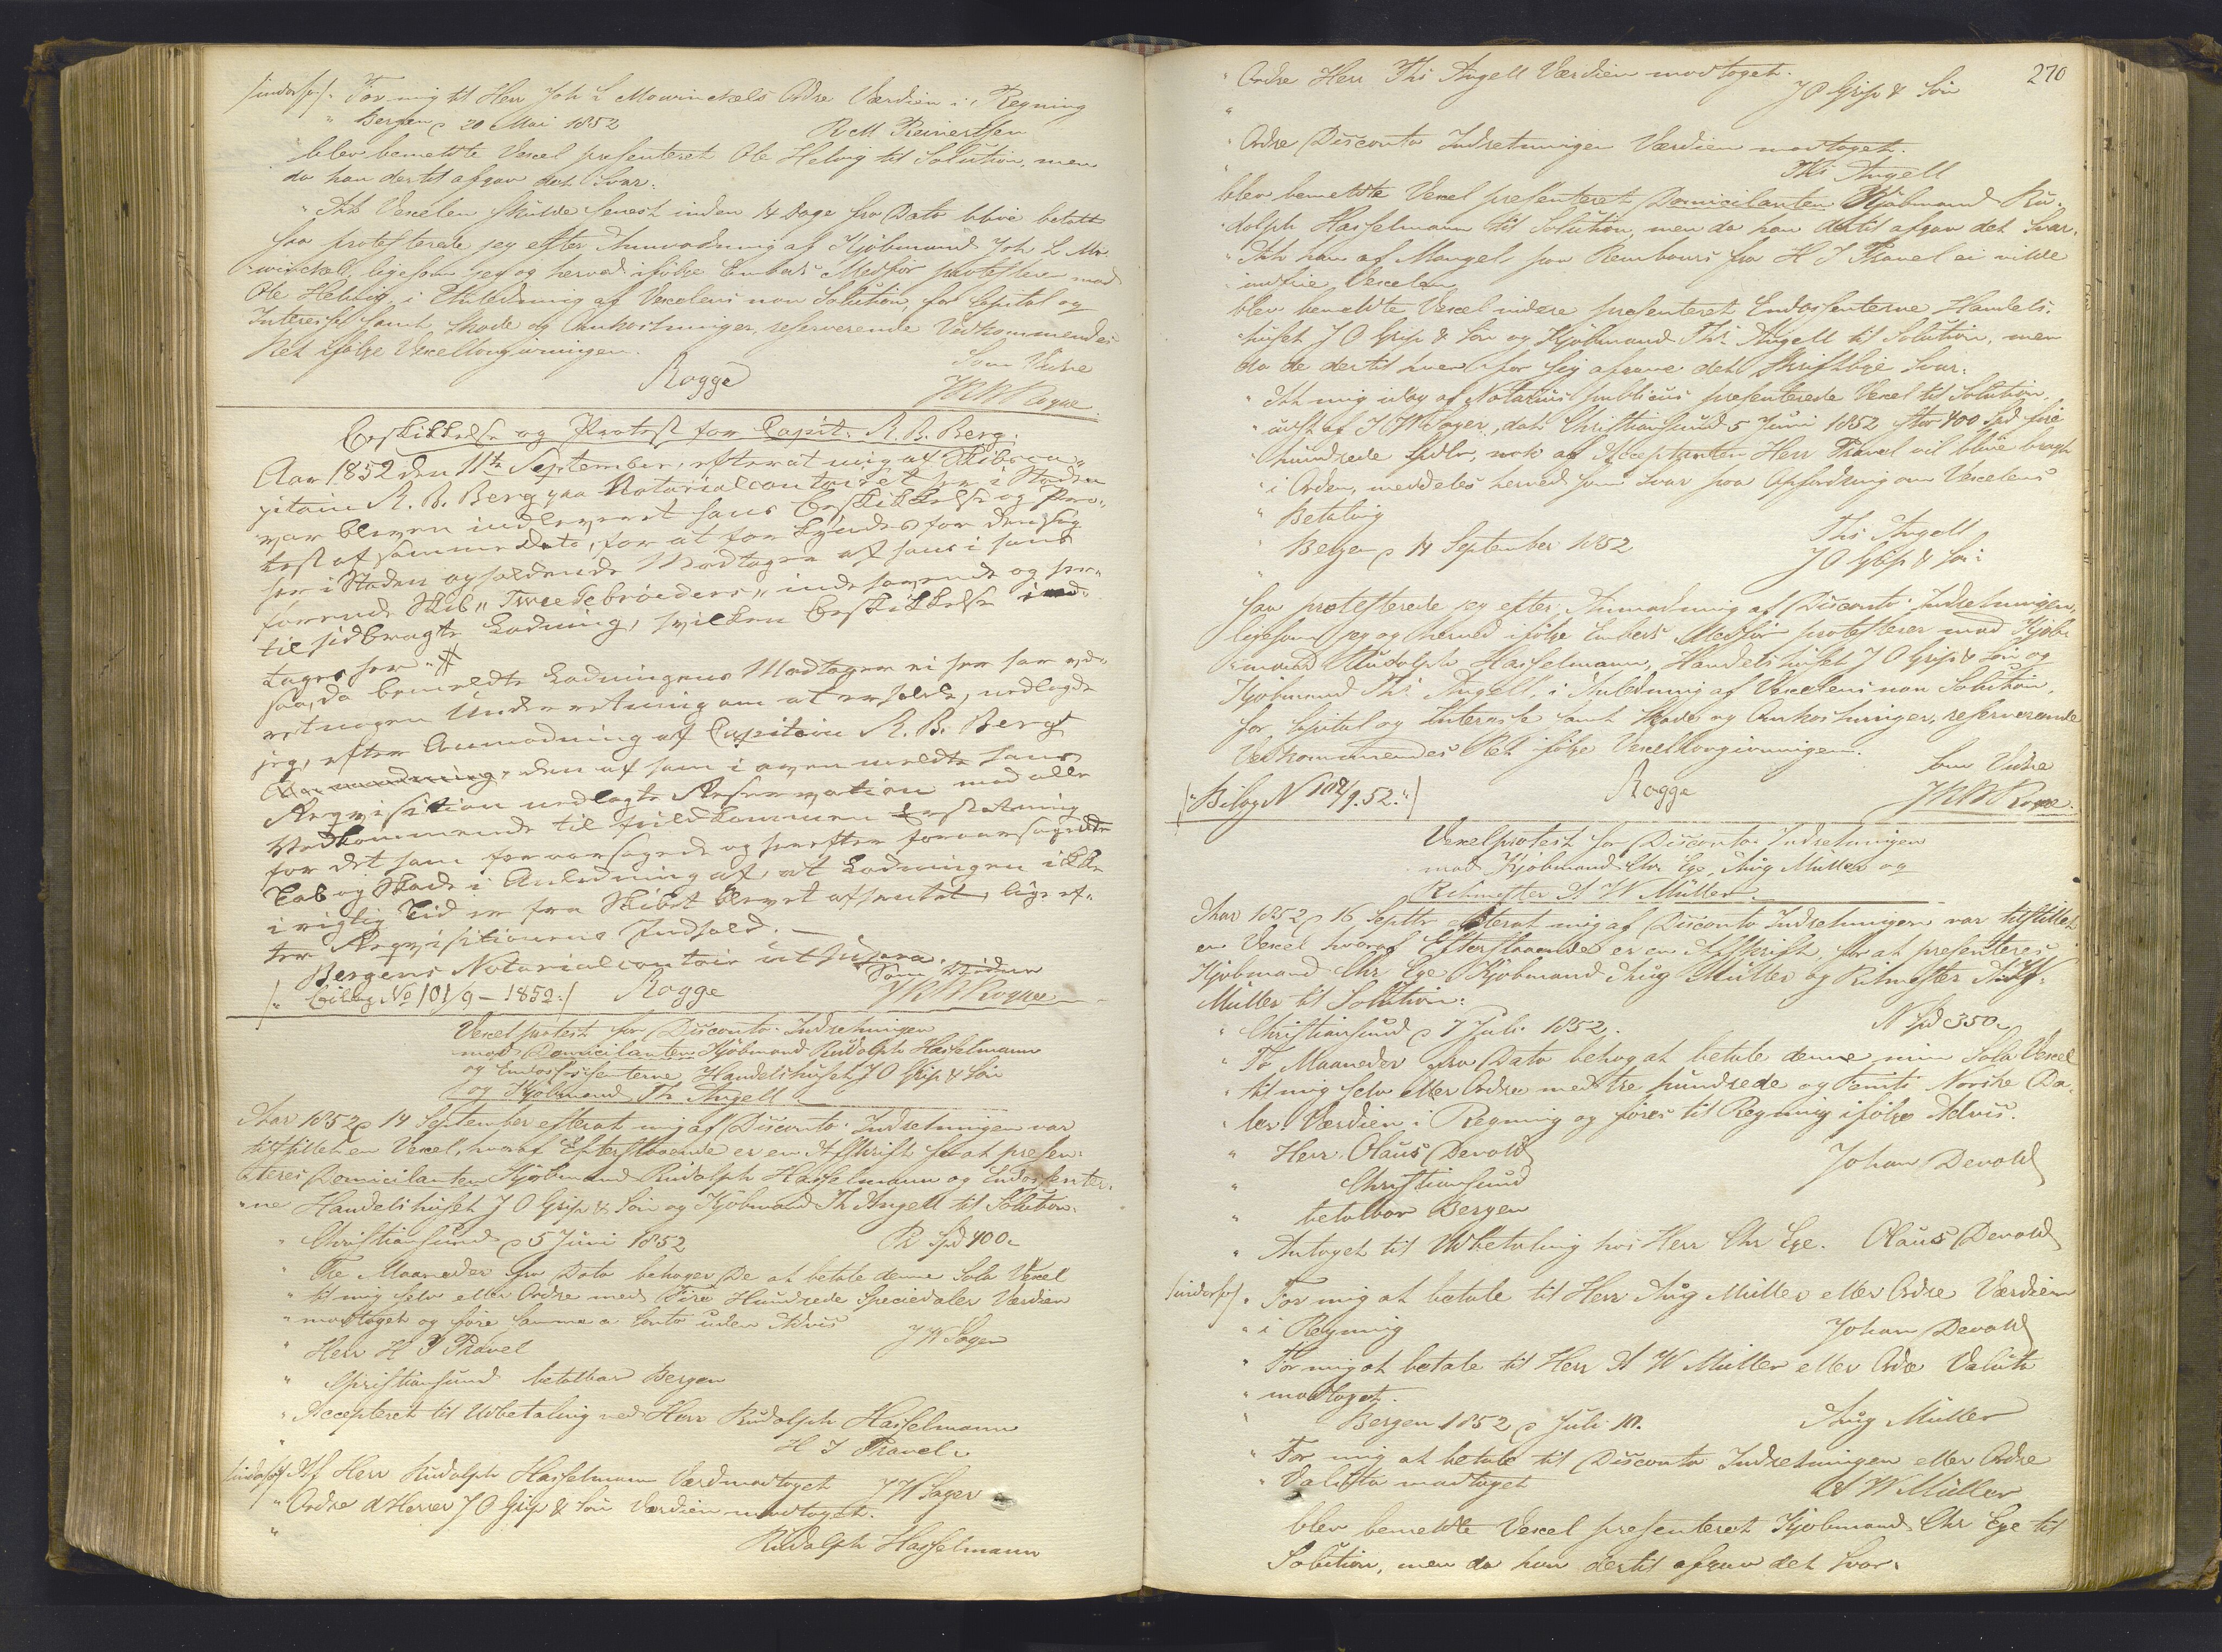 /indorsos/. For mig til Herr Joh L Mowinckels Ordre Værdien i Regning
" Bergen p 20 Mai 1852 R M Reinertsen
blev bemeldte Vexel præsenteret Ole Helvig til Solution, men
da han dertil afgav det Svar:
" At Vexelen skulde senest inden 14 Dage fra Dato blive betalt
saa protesterede jeg efter Anmodning af Kjøbmand Joh L Mo-
winckel, ligesom jeg og herved ifølge Embeds Medfør protesterer mod
Ole Helvig, i Anledning af Vexelens non Solution, for Capital og
Interesse samt Skade og Omkostninger, reserverende Vedkommendes
Ret ifølge Vexellovgivningen.
Som Vidne
Rogge
Beskikkelse og Protest for Capit. R. B. Berg.
Aar 1852 den 11te September, efterat mig af Skibsca-
pitain R. B. Berg paa Notarialcontoiret her i Staden
var bleven indleveret hans Beskikkelse og Pro-
test af samme Dato, for at forkyndes for den sig
her i Staden opholdende Modtager af hans i hans
førende Skib "Tweedebröeders" indehavende og her-
til hidbragte Ladning, hvilken Beskikkelse ind-
tages her "#
saa, da bemeldte Ladningens Modtager ei her har ved-
ret nogen Underretning om at erholde, nedlagde
jeg, efter Anmodning af Capitain R. B. Bergs
Anmodning, den af ham i ovenmeldte hans
Reqvisition nedlagte Reservation mod alle
Vedkommende til fuldkommen Erstatning
for det ham foraarsagede og herefter foraarsagende
Tab og Skade i Anledning af, at Ladningen ikke
i rigtig Tid er fra Skibet blevet afhentet, lige ef-
ter Reqvisitionens Indhold. -
Bergens Notarialcontoir ut supra.
Som Vidne
/: Bilag No 101/9 - 1852 :/ Rogge
Vexelprotest for Disconto Indretningen
mod Domicilanten Kjøbmand Rudolph Hasselmann
og Endossenterne Handelshuset J O Grip & Søn
og Kjøbmand Th Angell
Aar 1852 p 14 September efterat mig af Disconto Indretningen var
tilstillet en Vexel, hvoraf Efterstaaende er en Afskrift for at præsen-
teres Domicilanten Kjøbmand Rudolph Hasselmann og Endossenter-
ne Handelshuset J O Grip & Søn og Kjøbmand Th Angell til Solution:
" Christiansund p 5 Juni 1852 Pr Spd 400
" Tre Maaneder fra Dato behager De at betale denne Sola Vexel
" til mig selv eller Ordre med Fire Hundrede Speciedaler Værdien
" modtaget og føre samme a Conto uden Advis
" J W Sager
" Herr H J Thavel
" Christiansund betalbar Bergen
" Accepteret til Udbetaling ved Herr Rudolph Hasselmann
" H J Thavel
/indorsos/ Af Herr Rudolph Hasselmann Værd modtaget J W Sager
" Ordre d'Herrer J O Grip & Søn Værdien modtaget.
" Rudolph Hasselmann
270
" Ordre Herr Ths Angell Værdien modtaget.
" J O Grip & Søn
" Ordre Disconto Indretningen Værdien modtaget.
" Ths Angell
blev bemeldte Vexel præsenteret Domicilanten Kjøbmand Ru-
dolph Hasselmann til Solution, men da han dertil afgav det Svar:
" At han af Mangel paa Rembours fra H J Thavel ei vilde
" indfrie Vexelen
blev bemeldte Vexel videre præsenteret Endossenterne Handels-
huset J O Grip & Søn og Kjøbmand Ths Angell til Solution, men
da de dertil hver for sig afgave det skriftlige Svar:
" At mig idag af Notarius publicus præsenterede Vexel til Solution
" udst af J W Sager, dat: Christiansund 5 Juni 1852 stor 400 Spd fire
" hundrede Spdlr, nok af Acceptanten Herr Thavel vil blive bragt
" i Orden, meddeles herved som Svar paa Opfordring om Vexelens
" Betaling
" Bergen p 14 September 1852 Ths Angell
" J O Grip & Søn
saa protesterede jeg efter Anmodning af Disconto Indretningen,
ligesom jeg og herved ifølge Embeds Medfør protesterer mod Kjøb-
mand Rudolph Hasselmann, Handelshuset J O Grip & Søn og
Kjøbmand Ths Angell, i Anledning af Vexelens non Solution,
for Capital og Interesse samt Skade og Omkostninger, reserverende
Vedkommendes Ret ifølge Vexellovgivningen.
Som Vidne
/: Bilag N 102/9. 52. :/ Rogge
Vexelprotest for Disconto Indretningen
mod Kjøbmand Chr Ege, Aug Müller og
Ritmester A W Müller
Aar 1852 p 16 Septbr efterat mig af Disconto Indretningen var tilstillet
en Vexel hvoraf Efterstaaende er en Afskrift, for at præsenteres
Kjøbmand Chr Ege Kjøbmand Aug Müller og Ritmester A W
Müller til Solution:
" Christiansund p 7 Juli 1852. N Spd 350
" To Maaneder fra Dato behag at betale denne min Sola Vexel
" til mig selv eller Ordre med tre hundrede og femti Norske Da-
" ler. Værdien i Regning og føres til Regning ifølge Advis.
" Herr Olaus Devold Johan Devold
" Christiansund
" betalbar Bergen
" Antaget til Udbetaling hos Herr Chr Ege. Olaus Devold
/indorsos/. For mig at betale til Herr Aug Müller eller Ordre Værdien
" i Regning Johan Devold
" For mig at betale til Herr A W Müller eller Ordre Valuta
" modtaget.
" Bergen 1852 p Juli 10. Aug Müller
" For mig at betale til Disconto Indretningen eller Ordre
" Valuta modtaget A W Müller
blev bemeldte Vexel præsenteret Kjøbmand Chr Ege til
Solution, men da han dertil afgav det Svar: